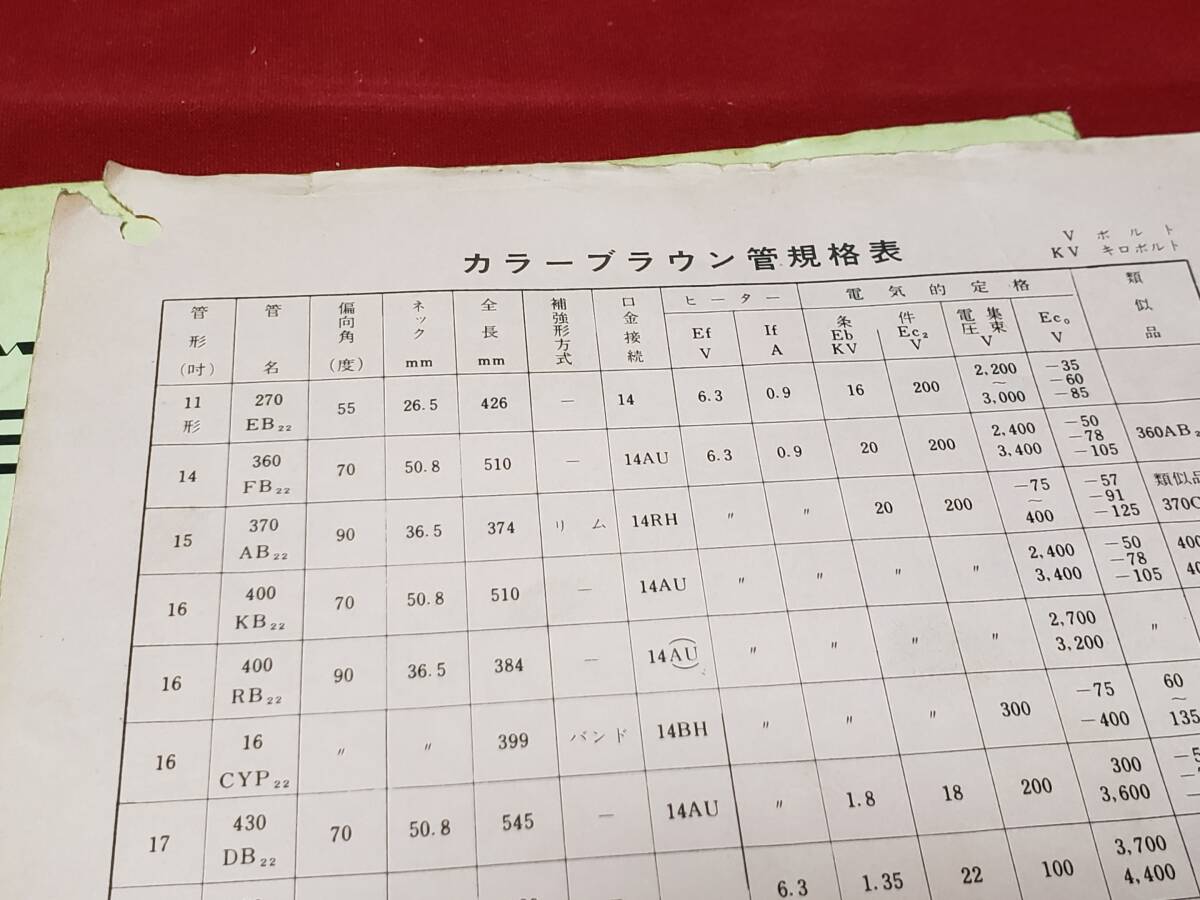 カラーブラウン管規格表
V ボルト
KV キロボルト
管形(吋) 管名 偏向角(度) ネックmm 全長mm 補強形方式 口金接続 ヒーター 電気的定格 類似品
Ef V If A 条件 Eb KV Ec₂ V 集束電圧 V Ec₀ V
11形 270EB₂₂ 55 26.5 426 — 14 6.3 0.9 16 200 2,200~3,000 −35 −60 −85
14 360FB₂₂ 70 50.8 510 — 14AU 6.3 0.9 20 200 2,400 3,400 −50 −78 −105 360AB₂
15 370AB₂₂ 90 36.5 374 リム 14RH 〃 〃 20 200 −75~400 −57 −91 −125 類似品 370C
16 400KB₂₂ 70 50.8 510 — 14AU 〃 〃 〃 〃 2,400 3,400 −50 −78 −105 400
16 400RB₂₂ 90 36.5 384 — 14AU 〃 〃 〃 〃 2,700 3,200 〃
16 16CYP₂₂ 〃 〃 399 バンド 14BH 〃 〃 〃 300 −75 −400 60~135
17 430DB₂₂ 70 50.8 545 — 14AU 〃 1.8 18 200 300 3,600
6.3 1.35 22 100 3,700 4,400